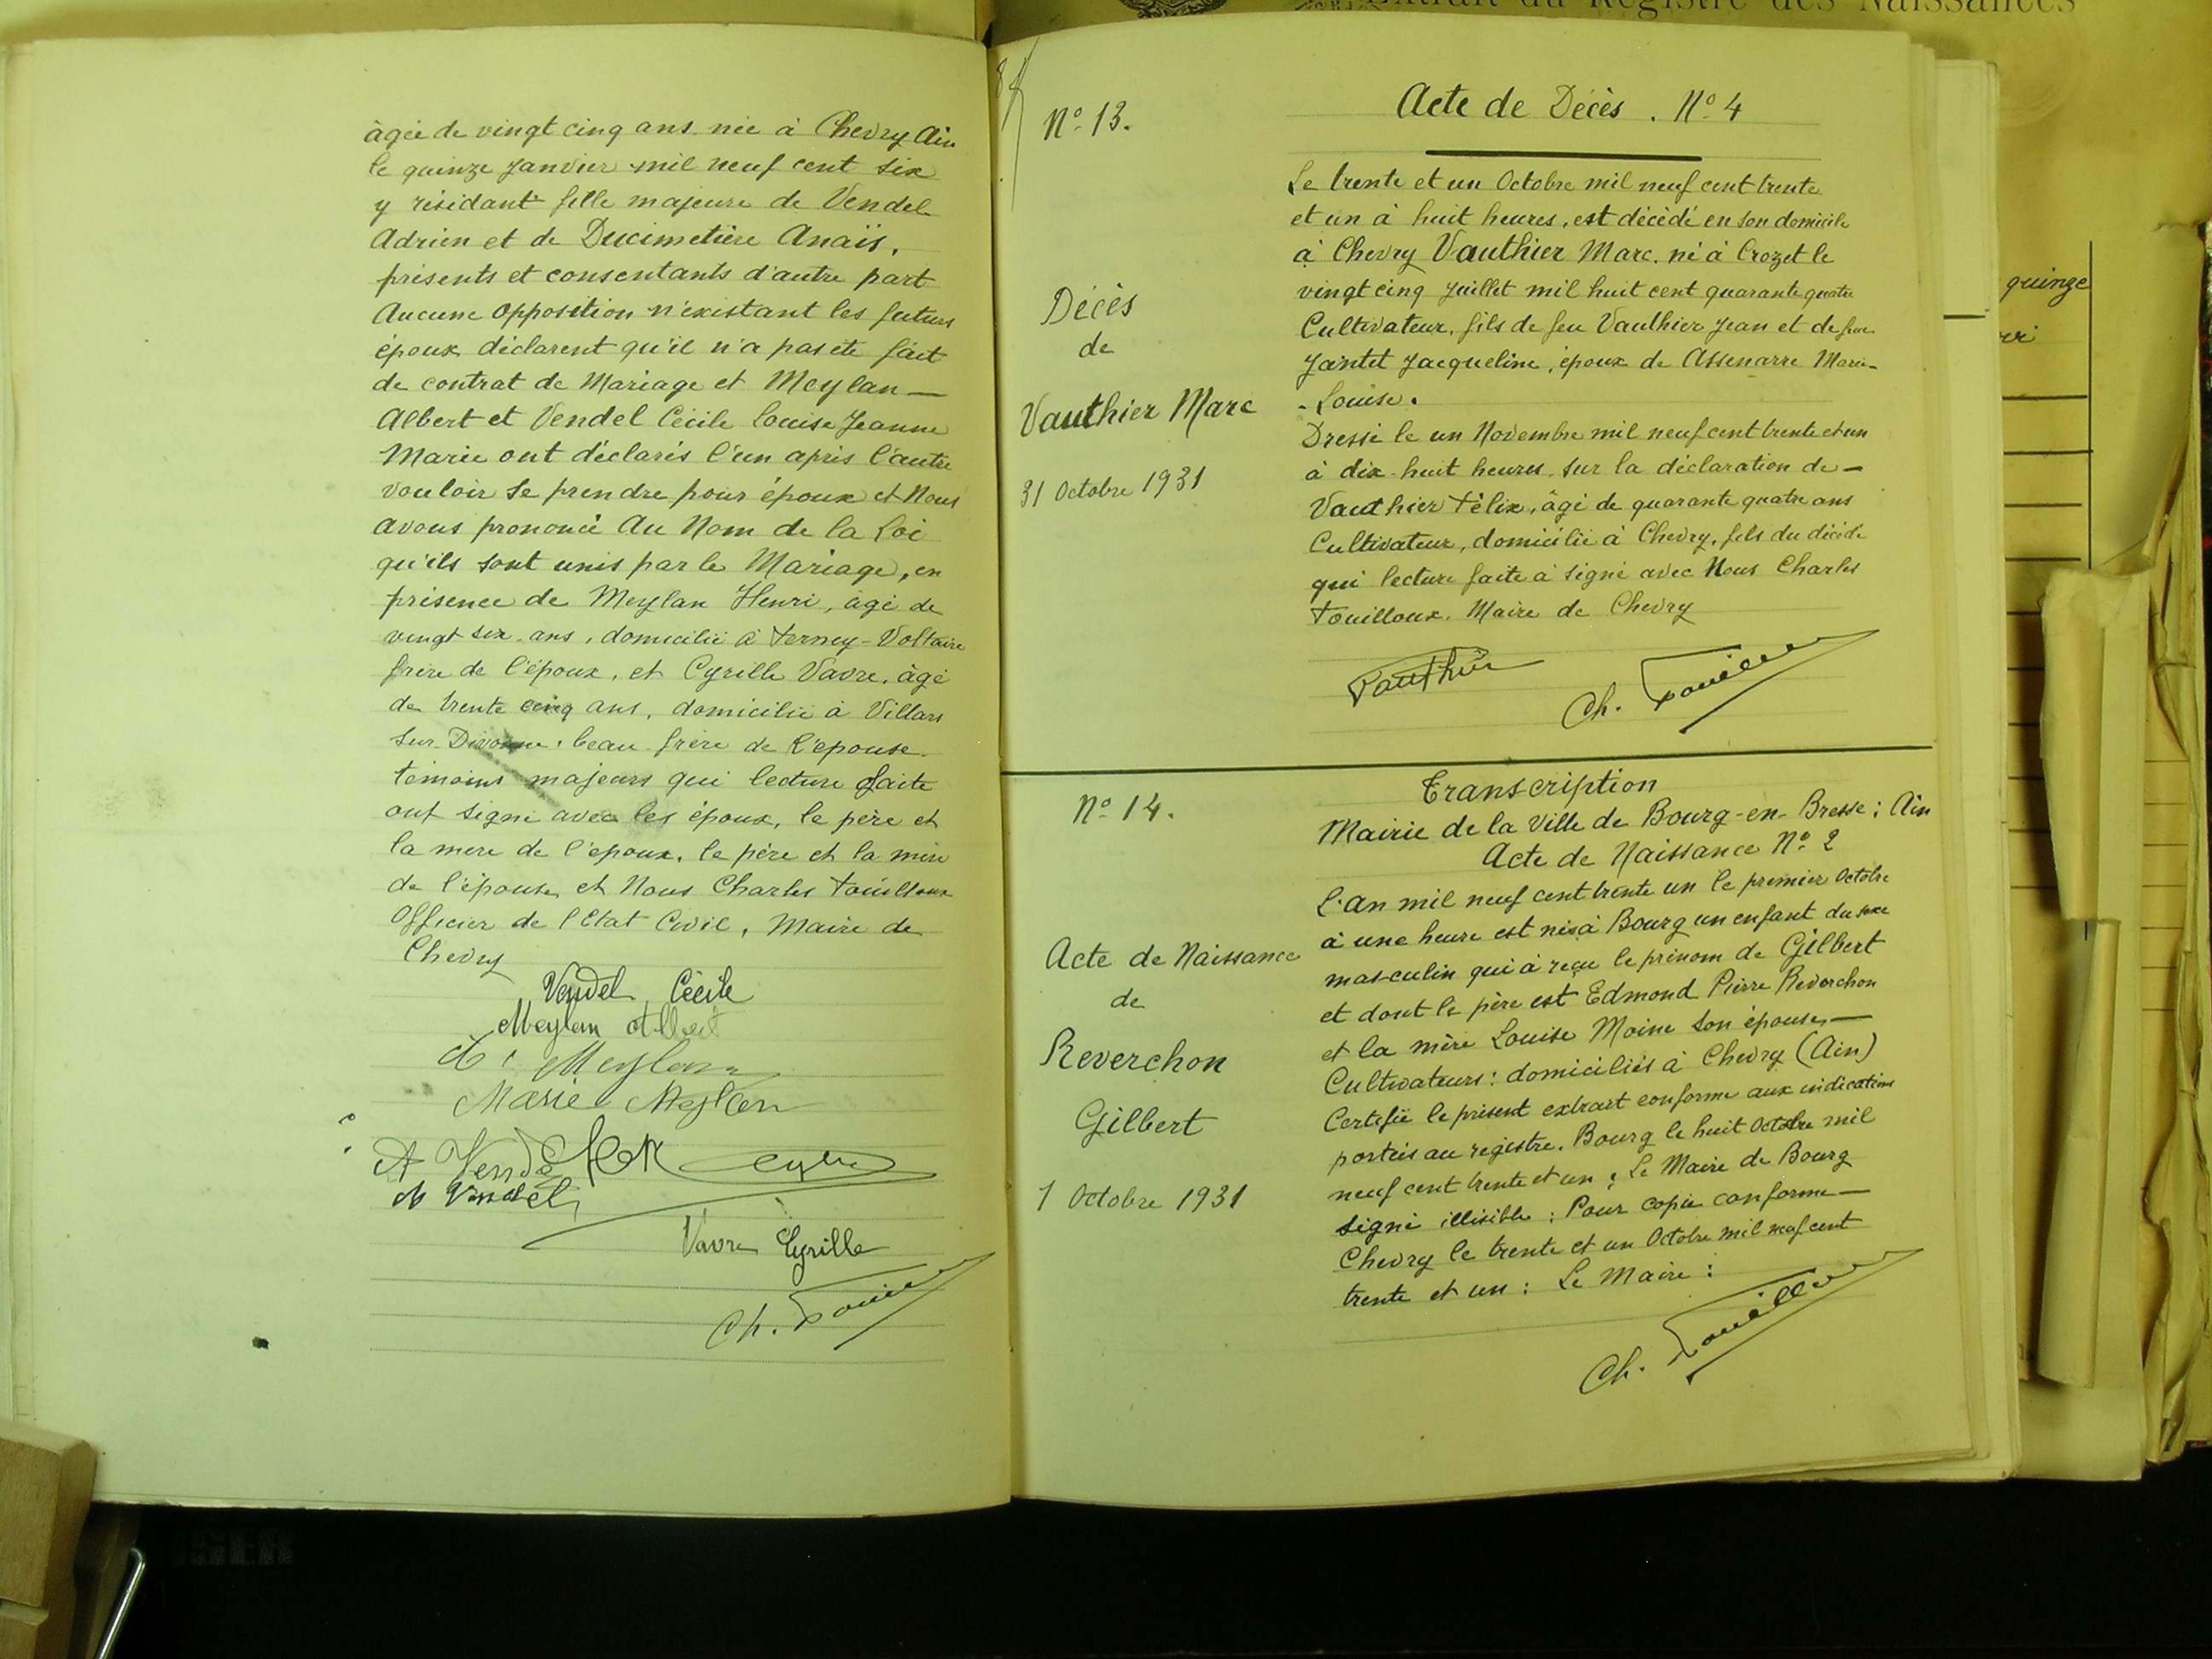 âgée de vingt cinq ans née à Chevry Ain
le quinze Janvier mil neuf cent six
y résidant fille majeure de Vendel
Adrien et de Ducimetière Anaïs,
présents et consentants d'autre part
Aucune opposition n'existant les futurs
époux déclarent qu'il n'a pas été fait
de contrat de Mariage et Meylan —
Albert et Vendel Cécile Louise Jeanne
Marie ont déclarés l'un après l'autre
vouloir se prendre pour époux et Nous
avons prononcé Au Nom de la Loi
qu'ils sont unis par le Mariage, en
présence de Meylan Henri, âgé de
vingt six ans, domicilié à Ferney-Voltaire
frère de l'époux, et Cyrille Vavre, âgé
de trente cinq ans, domicilié à Villars
sur Divonne, beau frère de l'épouse
témoins majeurs qui lecture faite
ont signé avec les époux, le père et
la mère de l'époux, le père et la mère
de l'épouse et Nous Charles Fouilloux
Officier de l'Etat Civil, Maire de
Chevry
Vendel Cécile
Meylan Albert
Meylan
Marie Meylan
A Vendel
M Vendel
Vavre Cyrille
Ch. Fouilloux
N° 13.
Décès
de
Vauthier Marc
31 Octobre 1931
Acte de Décès. N° 4
Le trente et un Octobre mil neuf cent trente
et un à huit heures, est décédé en son domicile
à Chevry Vauthier Marc. né à Crozet le
vingt cinq Juillet mil huit cent quarante quatre
Cultivateur, fils de feu Vauthier Jean et de feue
Jantet Jacqueline, époux de Assenarre Marie-
- Louise.
Dressé le un Novembre mil neuf cent trente et un
à dix-huit heures sur la déclaration de —
Vauthier Félix, âgé de quarante quatre ans
Cultivateur, domicilié à Chevry, fils du décédé
qui lecture faite à signé avec Nous Charles
Fouilloux. Maire de Chevry
Vauthier
Ch. Fouilloux
N° 14.
Acte de Naissance
de
Reverchon
Gilbert
1 Octobre 1931
Transcription
Mairie de la Ville de Bourg-en-Bresse; Ain
Acte de Naissance N° 2
L'an mil neuf cent trente un le premier Octobre
à une heure est né à Bourg un enfant du sexe
masculin qui à reçu le prénom de Gilbert
et dont le père est Edmond Pierre Reverchon
et la mère Louise Moine son épouse, —
Cultivateurs: domiciliés à Chevry (Ain)
Certifié le présent extrait conforme aux indications
portées au registre. Bourg le huit Octobre mil
neuf cent trente et un; Le Maire de Bourg
signé illisible: Pour copie conforme —
Chevry le trente et un Octobre mil neuf cent
trente et un: Le Maire:
Ch. Fouilloux
Extrait du Registre des Naissances
quinze